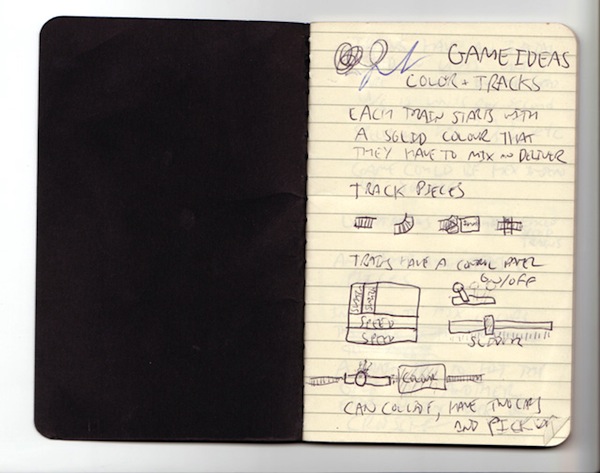 GAME IDEAS
COLOR + TRACKS
EACH TRAIN STARTS WITH
A SOLID COLOUR THAT
THEY HAVE TO MIX DELIVER
TRACK PIECES
TRAINS HAVE A CONTROL PANEL
ON/OFF
SPEED
SPEED
SLIDER
COLOUR
CAN COLLIDE, HAVE TWO CARS
AND PICK UP